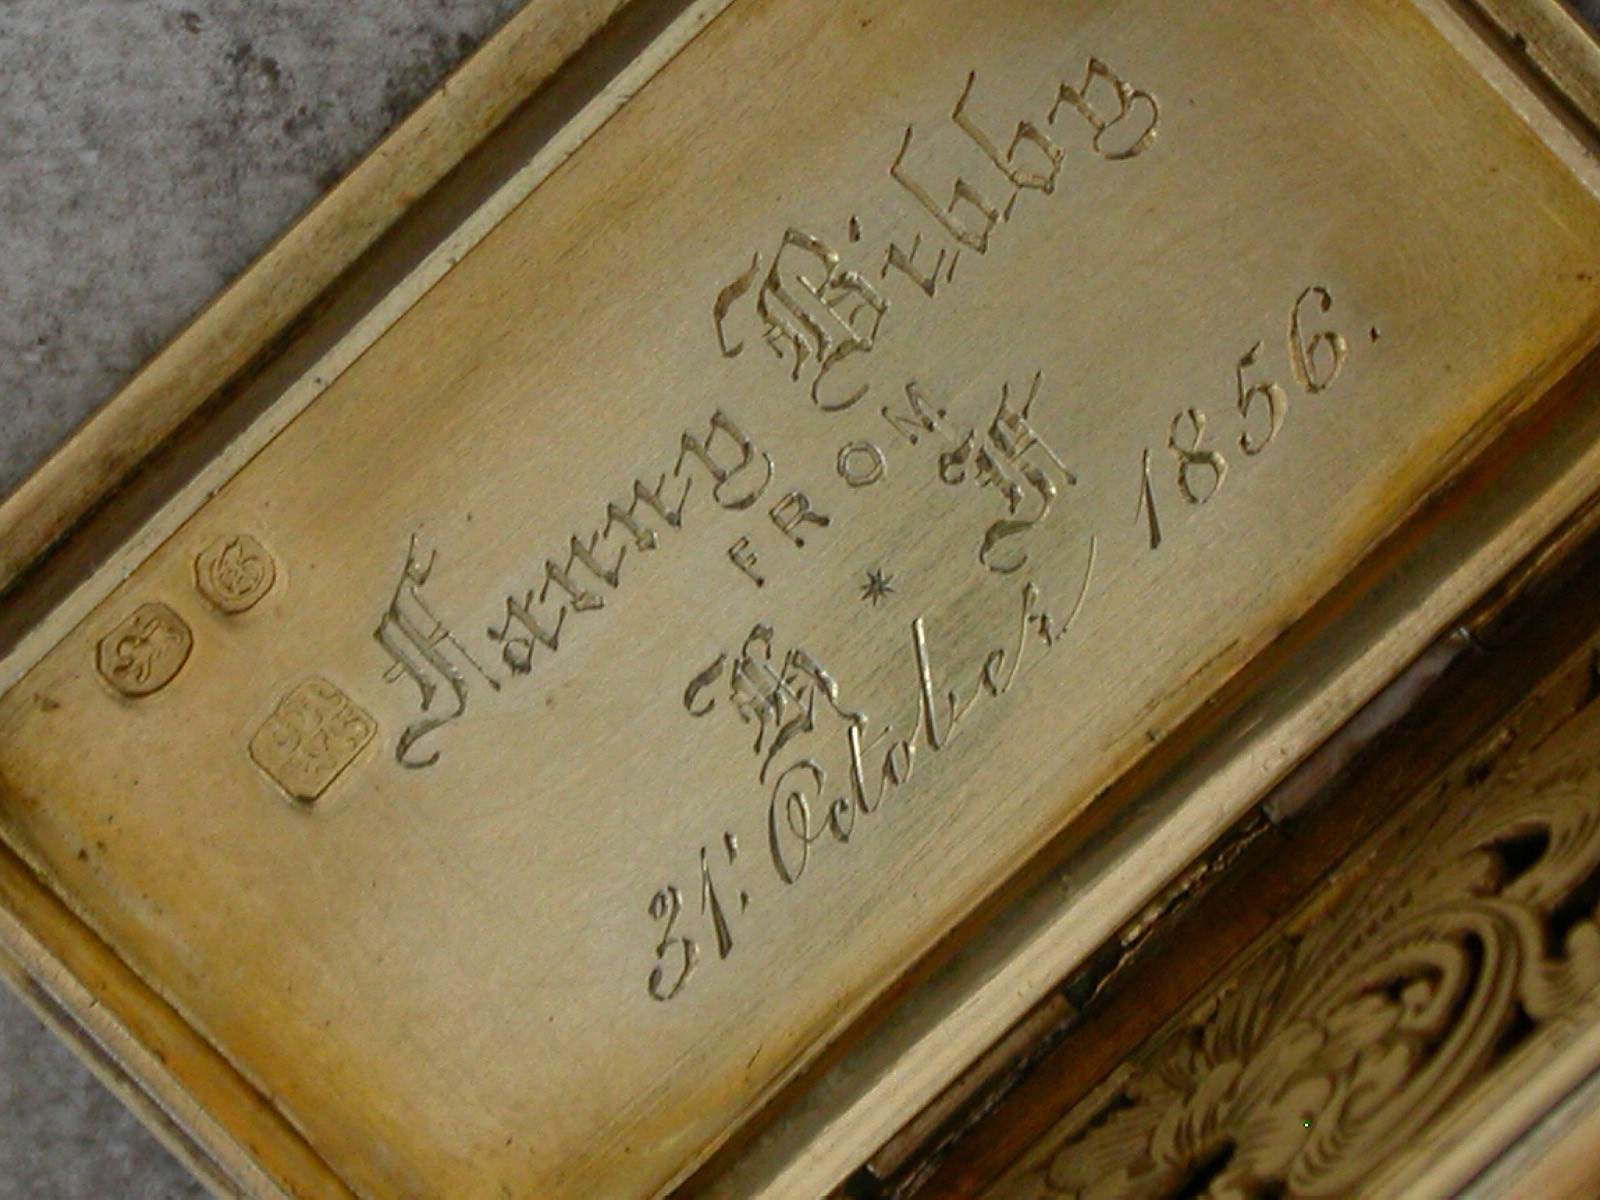 Fanny Bibby
FROM
H * H
31st October 1856.